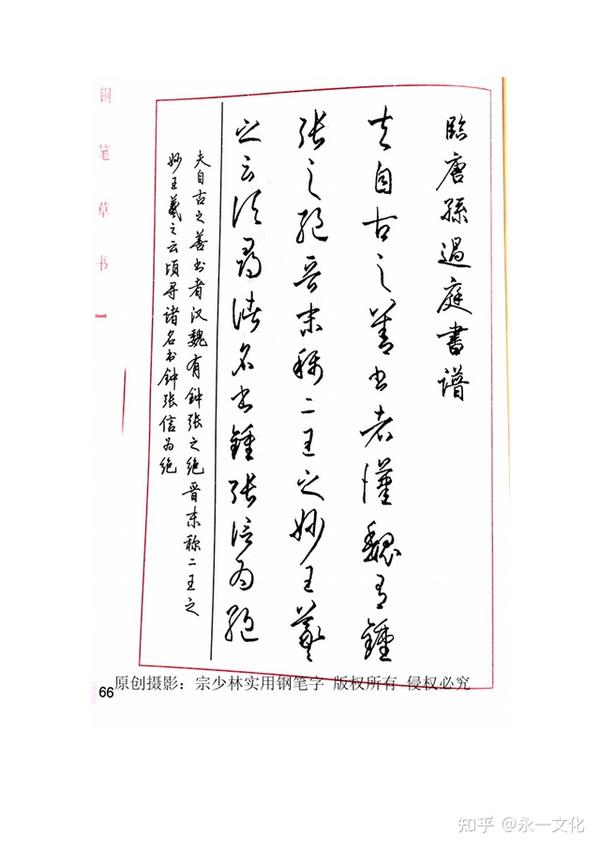 臨唐孫過庭書譜
夫自古之善書者漢魏有鍾
張之絕晉末稱二王之妙王羲
之云頃尋諸名書鍾張信為絕
夫自古之善书者汉魏有钟张之绝晋末称二王之
妙王羲之云顷寻诸名书钟张信为绝
钢笔草书
66
原创摄影：宗少林实用钢笔字 版权所有 侵权必究
知乎 @永一文化